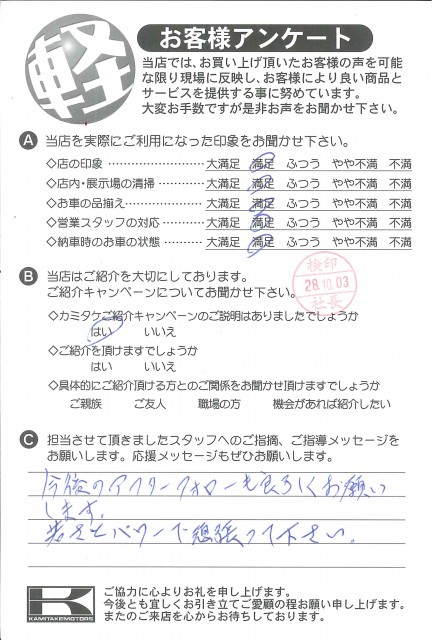 軽
お客様アンケート
当店では、お買い上げ頂いたお客様の声を可能
な限り現場に反映し、お客様により良い商品と
サービスを提供する事に努めています。
大変お手数ですが是非お声をお聞かせ下さい。
A 当店を実際にご利用になった印象をお聞かせ下さい。
◇店の印象 ……………………… 大満足 満足 ふつう やや不満 不満
◇店内・展示場の清掃 ………… 大満足 満足 ふつう やや不満 不満
◇お車の品揃え ………………… 大満足 満足 ふつう やや不満 不満
◇営業スタッフの対応 ………… 大満足 満足 ふつう やや不満 不満
◇納車時のお車の状態 ………… 大満足 満足 ふつう やや不満 不満
B 当店はご紹介を大切にしております。
ご紹介キャンペーンについてお聞かせ下さい。
検印
28.10.03
社長
◇カミタケご紹介キャンペーンのご説明はありましたでしょうか
はい いいえ
◇ご紹介を頂けますでしょうか
はい いいえ
◇具体的にご紹介頂ける方とのご関係をお聞かせ頂けますでしょうか
ご親族 ご友人 職場の方 機会があれば紹介したい
C 担当させて頂きましたスタッフへのご指摘、ご指導メッセージを
お願いします。応援メッセージもぜひお願いします。
今後のアフターフォローも良ろしくお願い
します。
若さとパワーで頑張って下さい。
K
KAMITAKEMOTORS
ご協力に心よりお礼を申し上げます。
今後とも宜しくお引き立てご愛顧の程お願い申し上げます。
またのご来店を心からお待ちしております。